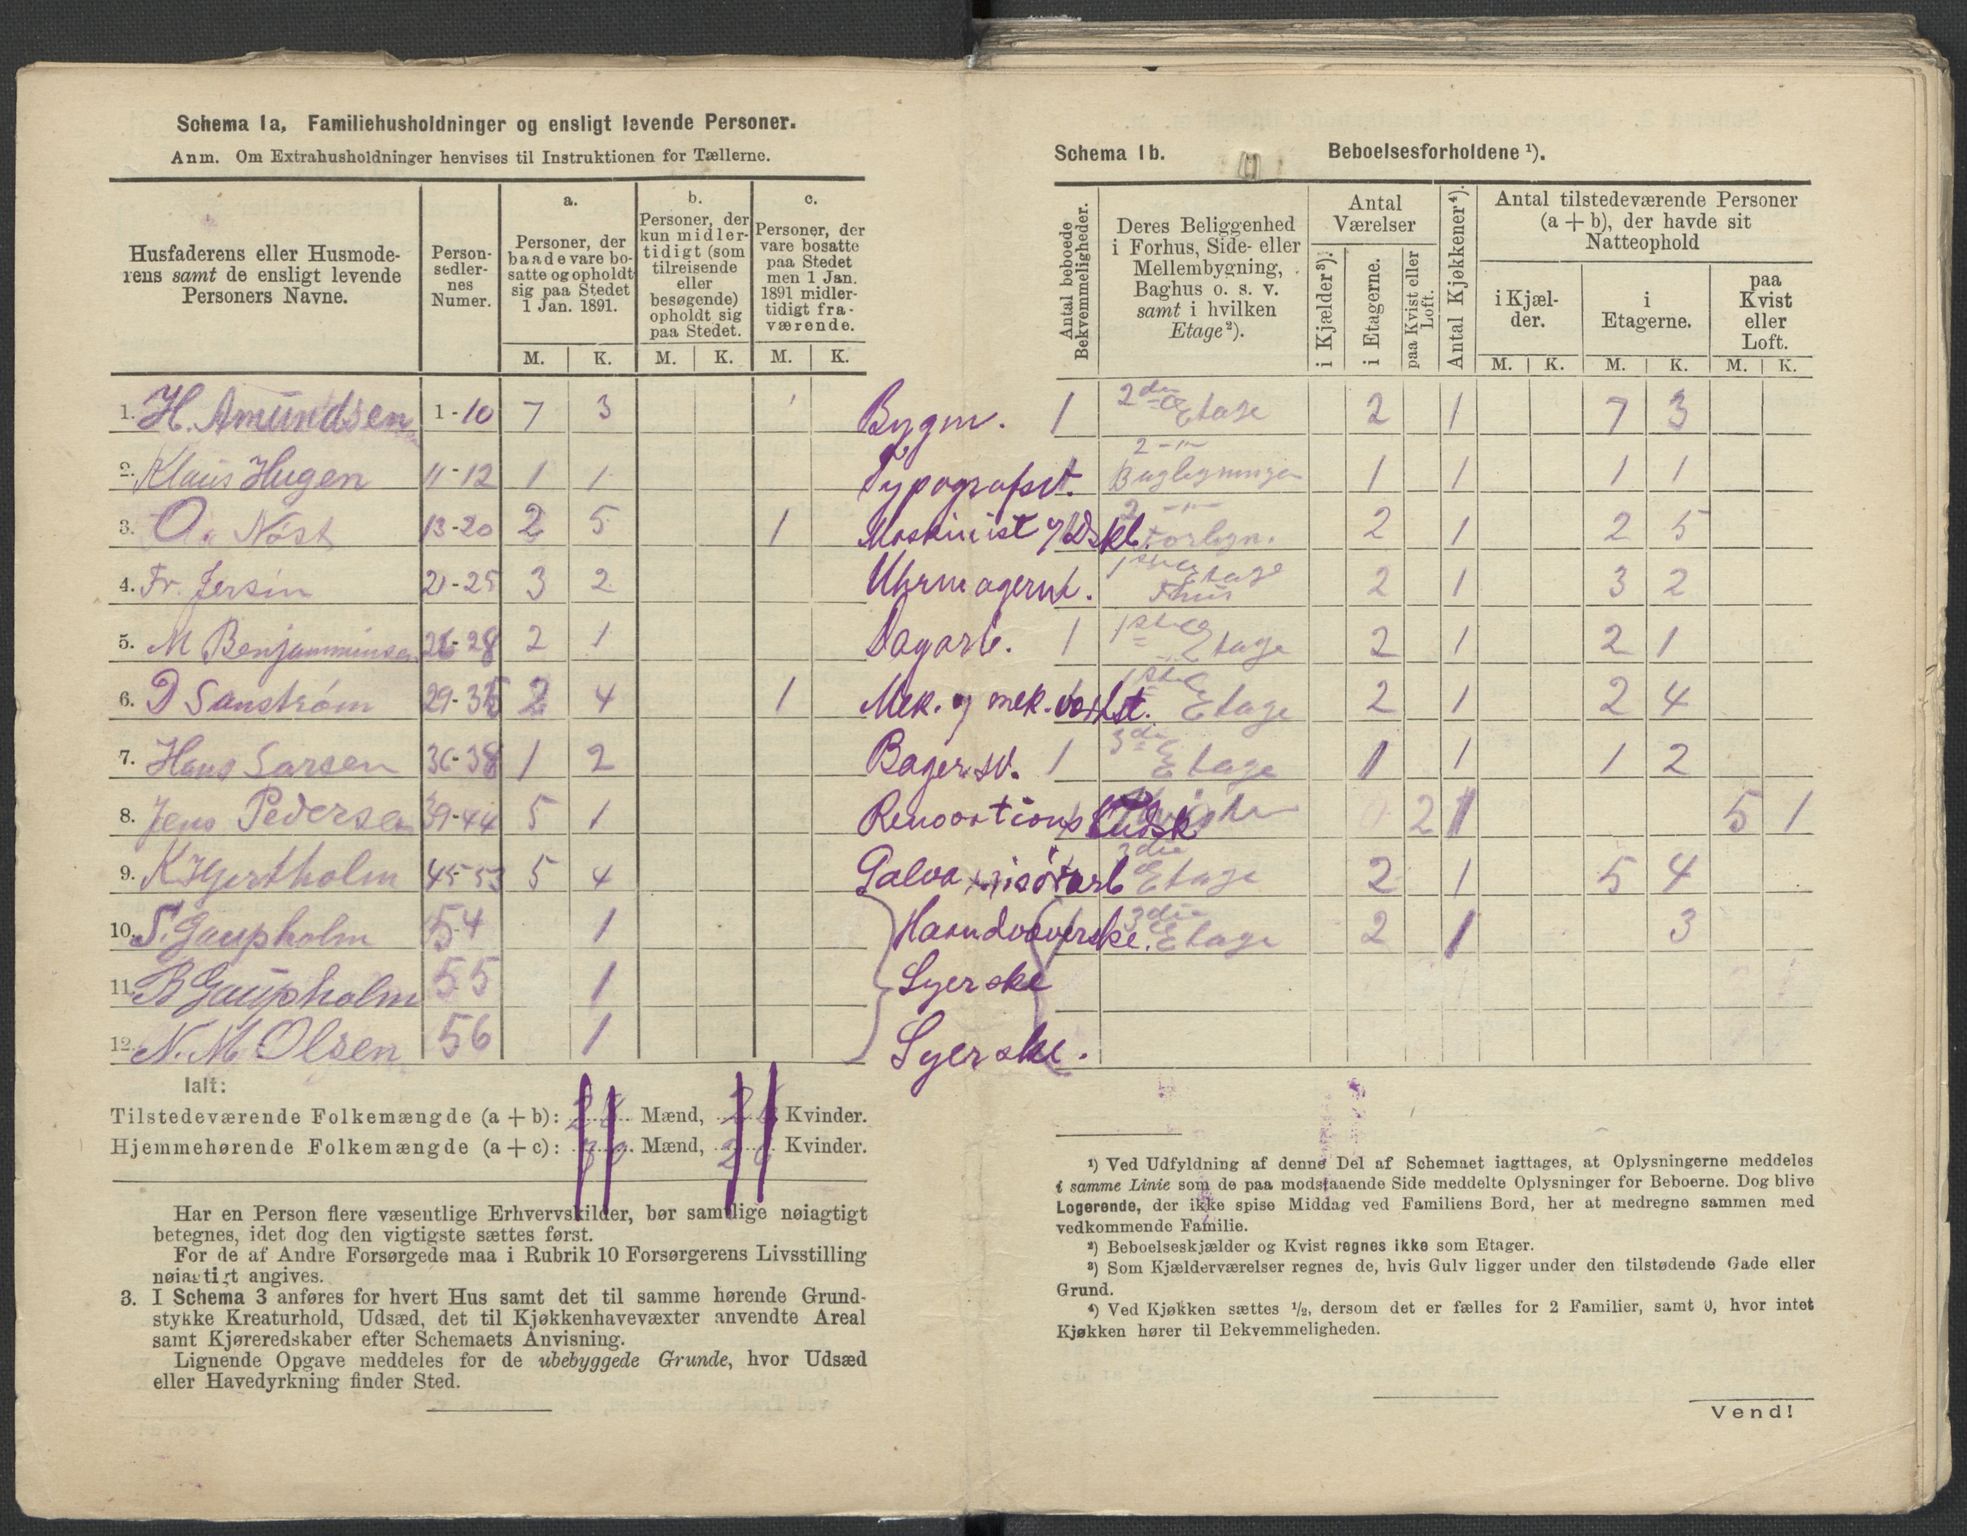 Schema 1a, Familiehusholdninger og ensligt levende Personer.
Anm. Om Extrahusholdninger henvises til Instruktionen for Tællerne.
Husfaderens eller Husmoderens samt de ensligt levende Personers Navne.
Personsedlernes Numer.
a. Personer, der baade vare bosatte og opholdt sig paa Stedet 1 Jan. 1891.
b. Personer, der kun midlertidigt (som tilreisende eller besøgende) opholdt sig paa Stedet.
c. Personer, der vare bosatte paa Stedet men 1 Jan. 1891 midlertidigt fraværende.
M. K. M. K. M. K.
1. H. Amundsen 1-10 7 3 1
2. Klaus Hugen 11-12 1 1
3. O. Nøst 13-20 2 5 1
4. Fr. Jersin 21-25 3 2
5. M Benjamminsen 26-28 2 1
6. D Sanstrøm 29-35 2 4 1
7. Hans Larsen 36-38 1 2
8. Jens Pedersen 39-44 5 1
9. K Hjertholm 45-53 5 4
10. S. Gaupholm 54 1
11. B Gaupholm 55 1
12. N. M. Olsen 56 1
Ialt:
Tilstedeværende Folkemængde (a + b): 28 Mænd, 26 Kvinder.
Hjemmehørende Folkemængde (a + c): 30 Mænd, 26 Kvinder.
Har en Person flere væsentlige Erhvervskilder, bør samtlige nøiagtigt
betegnes, idet dog den vigtigste sættes først.
For de af Andre Forsørgede maa i Rubrik 10 Forsørgerens Livsstilling
nøiagtigt angives.
3. I Schema 3 anføres for hvert Hus samt det til samme hørende Grund-
stykke Kreaturhold, Udsæd, det til Kjøkkenhavevæxter anvendte Areal
samt Kjøreredskaber efter Schemaets Anvisning.
Lignende Opgave meddeles for de ubebyggede Grunde, hvor Udsæd
eller Havedyrkning finder Sted.
Schema 1b. Beboelsesforholdene ¹).
Antal beboede Bekvemmeligheder.
Deres Beliggenhed i Forhus, Side- eller Mellembygning, Baghus o. s. v. samt i hvilken Etage ²).
Antal Værelser
i Kjælder ³).
i Etagerne.
paa Kvist eller Loft.
Antal Kjøkkener ⁴).
Antal tilstedeværende Personer (a + b), der havde sit Natteophold
i Kjælder.
i Etagerne.
paa Kvist eller Loft.
M. K. M. K. M. K.
Bygm. 1 2den Etage 2 1 7 3
Typografsv. 2 Bagbygningen 1 1 1 1
Maskinist 2 Forbyn. 2 1 2 5
Uhrmagerm. 1ste Etage Fhus 2 1 3 2
Dagarb. 1 1ste Etage 2 1 2 1
Mek. og mek. 1ste Etage 2 1 2 4
Bagersv. 1 3die Etage 1 1 1 2
Renovations 2 1 5 1
3die Etage 2 1 5 4
Haandvæverske. 3die Etage 2 1 3
Syerske
Syerske.
¹) Ved Udfyldning af denne Del af Schemaet iagttages, at Oplysningerne meddeles
i samme Linie som de paa modstaaende Side meddelte Oplysninger for Beboerne. Dog blive
Logerende, der ikke spise Middag ved Familiens Bord, her at medregne sammen med
vedkommende Familie.
²) Beboelseskjælder og Kvist regnes ikke som Etager.
³) Som Kjælderværelser regnes de, hvis Gulv ligger under den tilstødende Gade eller
Grund.
⁴) Ved Kjøkken sættes ½, dersom det er fælles for 2 Familier, samt 0, hvor intet
Kjøkken hører til Bekvemmeligheden.
Vend!